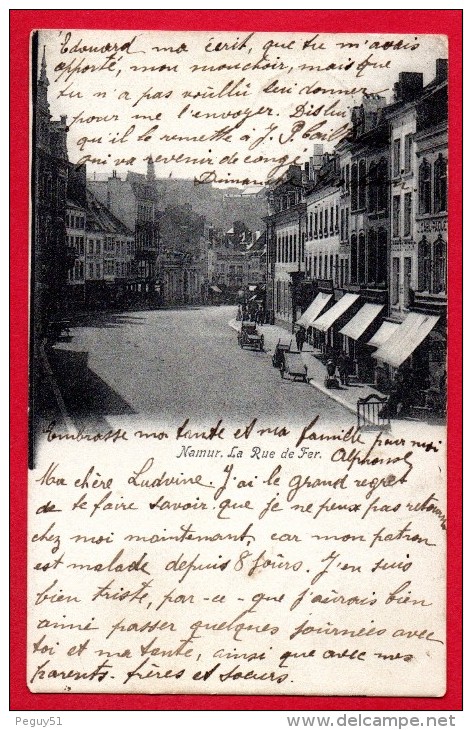 Edouard m'a écrit, que tu m'avais
apporté, mon mouchoir, mais que
tu n'a pas voullu lui donner
pour me l'envoyer. Dis lui
qu'il le remette à J. P.
qui va revenir de congé
Dimanche
Embrasse moi tante et ma famille pour moi
Alphonse
Namur. La Rue de Fer.
Ma chère Ludvine. J'ai le grand regret
de te faire savoir que je ne peux pas retourner
chez moi maintenant, car mon patron
est malade depuis 8 jours. J'en suis
bien triste, par-ce-que j'aurais bien
aimé passer quelques journées avec
toi et ma tante, ainsi que avec mes
parents- frères et soeurs.
Peguy51
www.delcampe.net